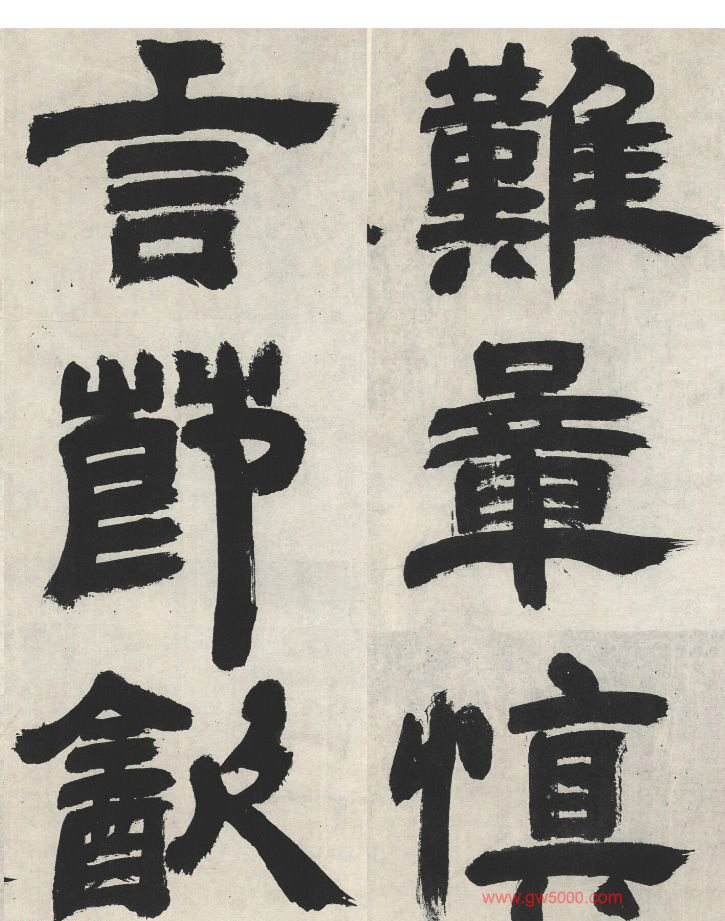 難量慎
言節㱃
www.gw5000.com